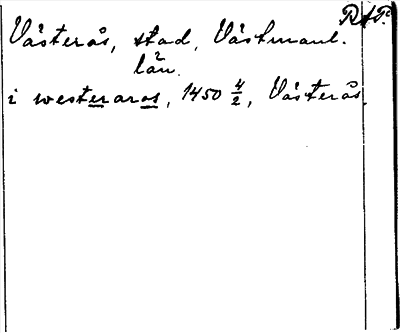 RAP.
Västerås, stad, Västmanl.
län.
i westeraros, 1450 4/2, Västerås.